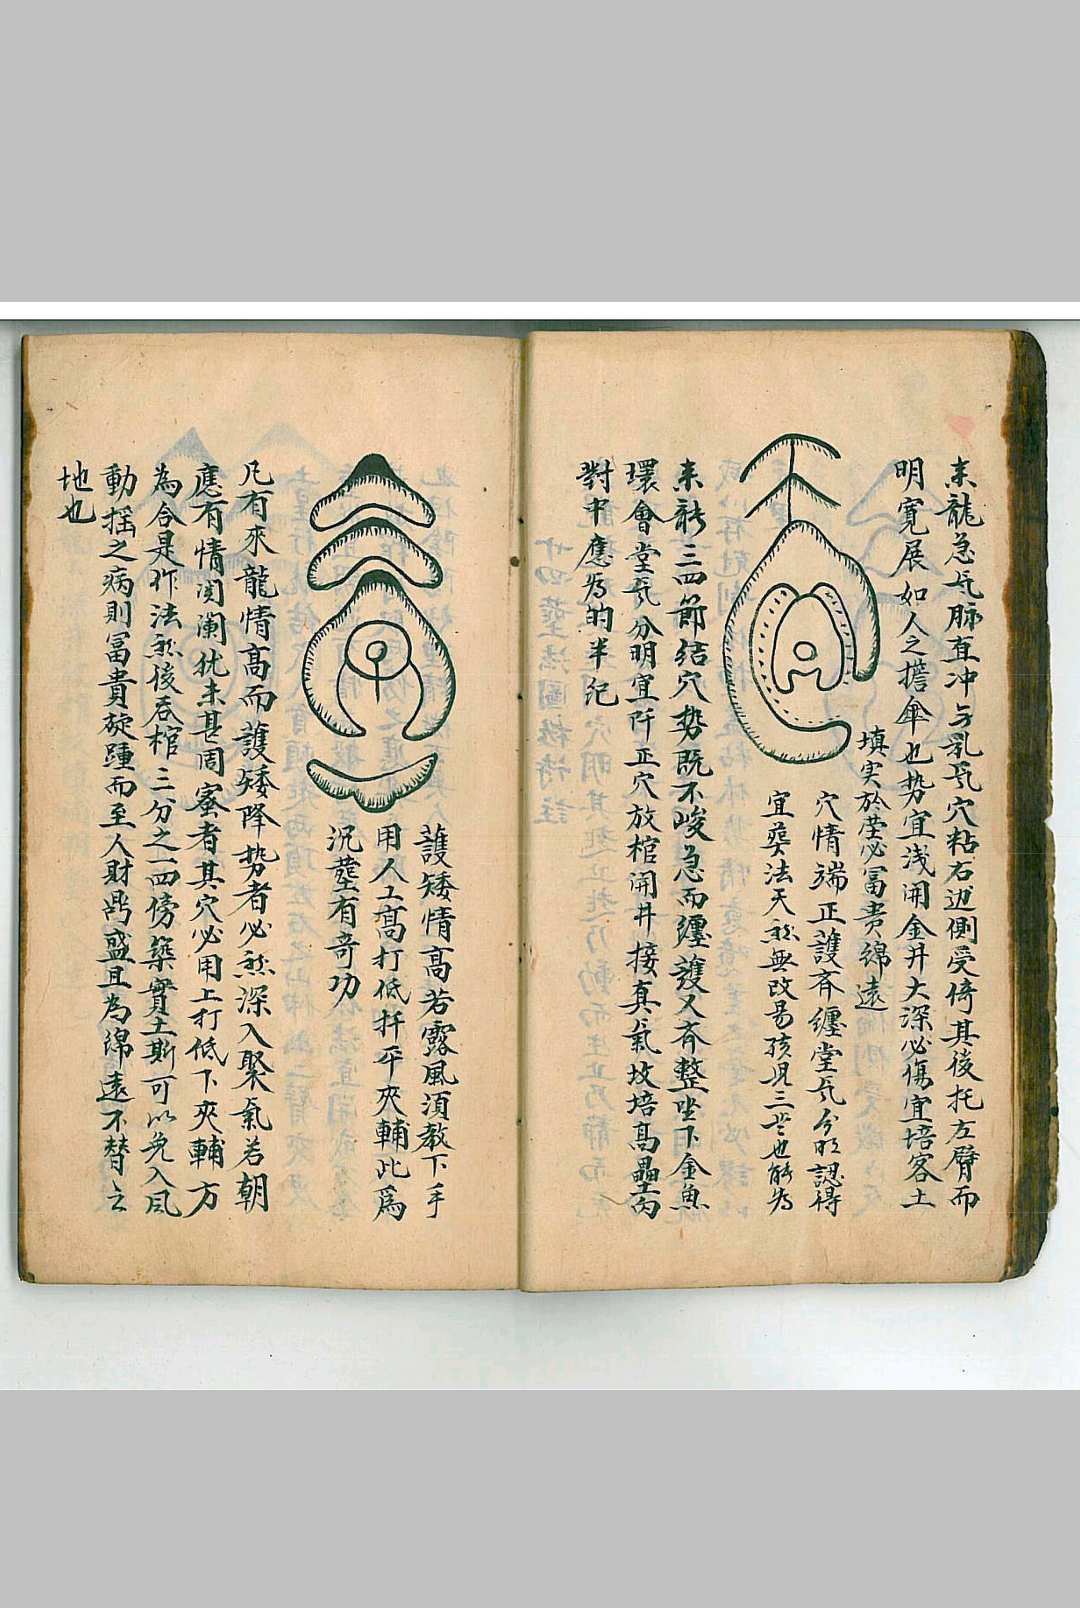 来龍急气脉直冲气乳气穴粘右边側受倚其後托左臂而
明寛展如人之擔傘也势宜浅開金井大深必傷宜培客土
填实於塋必冨贵綿遠
穴情端正護斉纏堂气分明認得
宜葬法天然無改易孩児三岁也能为
来龍三四節结穴势既不峻急而纏護又斉整坐下金魚
環會堂气分明宜阡正穴放棺開井接真气坟培高壘丙
對中應为的半紀
護矮情高若露風湏教下手
用人工高打低扦平夾輔此爲
况塟有奇功
凡有來龍情高而護矮降势者必然深入聚氣若朝
應有情関闌犹未甚周宻者其穴必用上打低下夾輔方
為合是作法然後吞棺三分之一四傍築實土斯可以免入风
動揺之病則冨貴旋踵而至人財鼎盛且為綿遠不替之
地也